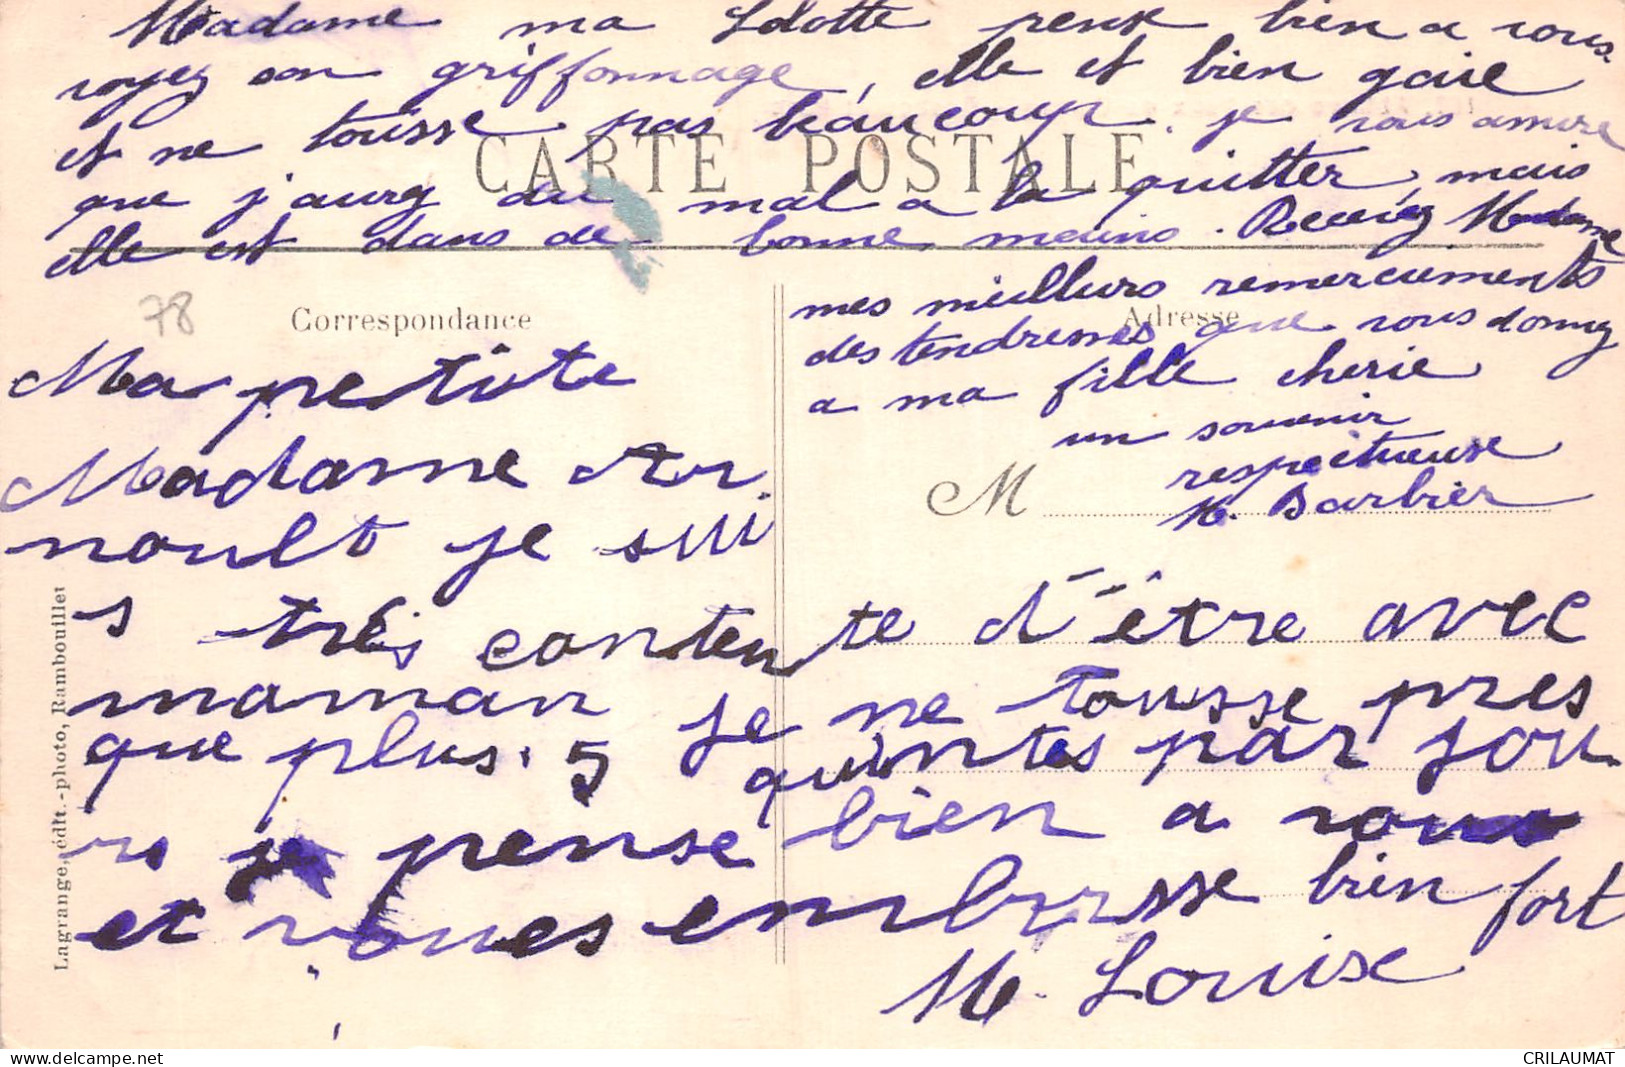 Madame ma Lolotte pense bien a vous.
voyez son griffonnage, elle et bien gaie
et ne tousse pas beaucoup. je vous assure
CARTE POSTALE
que j'aurez du mal a la quitter, mais
elle est dans de bonne mains. Recevez Madame
mes meilleurs remerciements
des tendresses que vous donnez
a ma fille cherie
un souvenir
respectueuse
M. Barbier
78
Correspondance
Adresse
M
Ma petite
Madame Ar.
noult je sui
s très contente d'être avec
maman je ne tousse pres
que plus. 5 quintes par jou
rs je pense bien a vous
et voues embrsse bien fort
M. Louise
Lagrange, édit.-photo, Rambouillet
www.delcampe.net
CRILAUMAT